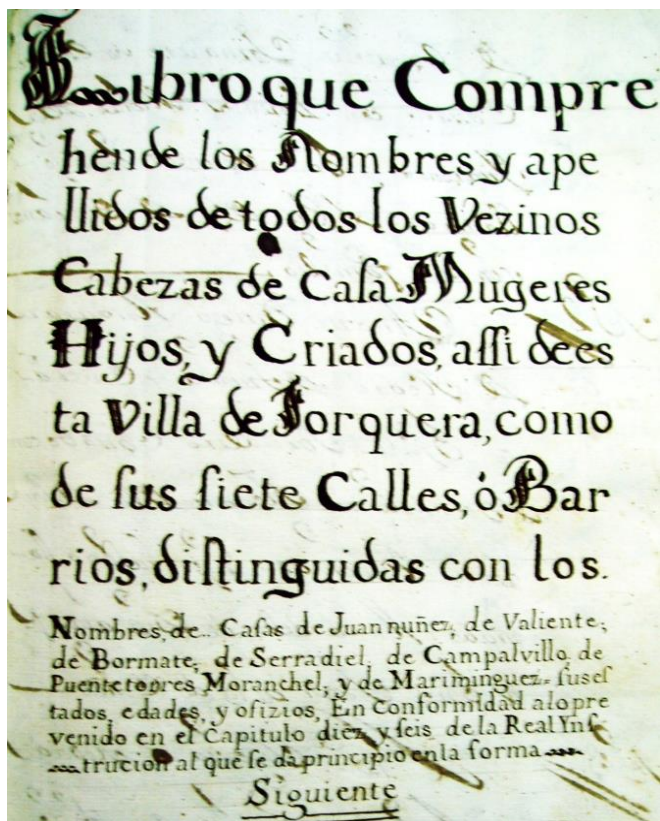 Libro que Compre
hende los Nombres y ape
llidos de todos los Vezinos
Cabezas de Casa Mugeres
Hijos, y Criados, assi dees
ta Villa de Jorquera, como
de sus siete Calles, ó Bar
rios, distinguidas con los.
Nombres, de Casas de Juan nuñez, de Valiente,
de Bormate, de Serradiel, de Campalvillo, de
Puentetorres Moranchel, y de Mariminguez, suses
tados, edades, y ofizios, En Conformidad alopre
venido en el Capitulo diez, y seis de la Real Yns
trucion al que se da principio en la forma
Siguiente